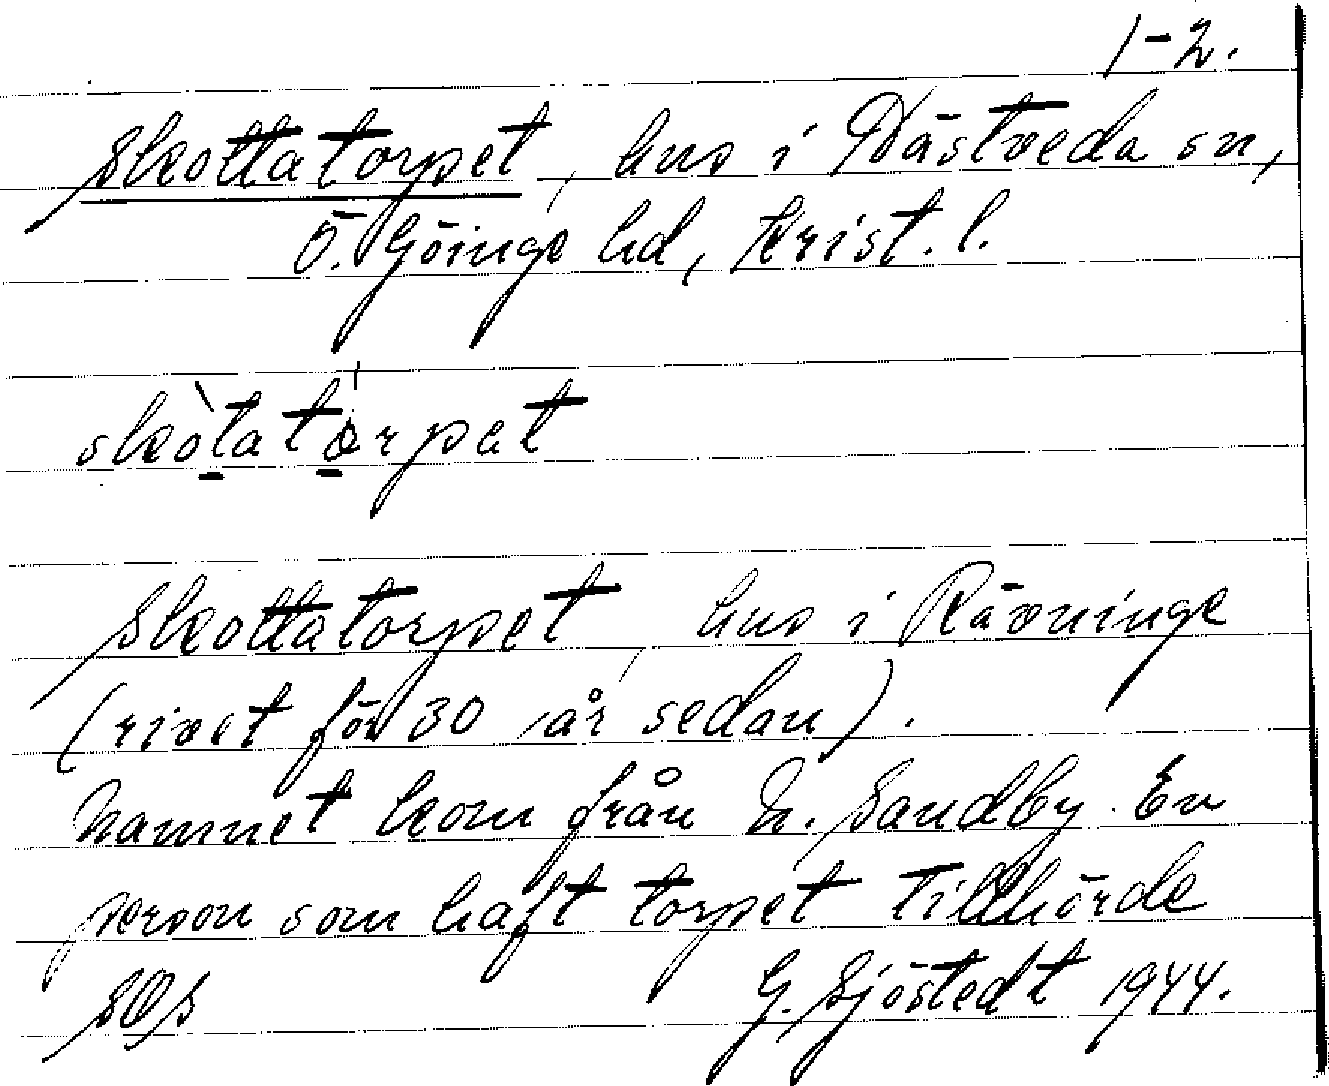 1-2.
Skottatorpet, hus i Västveda sn,
Ö. Göinge hd, Krist. l.
skòtatórpet
Skottatorpet, hus i Rävninge
(rivet för 30 år sedan).
Namnet kom från N. Sandby. En
person som haft torpet tillhörde
G. Sjöstedt 1944.